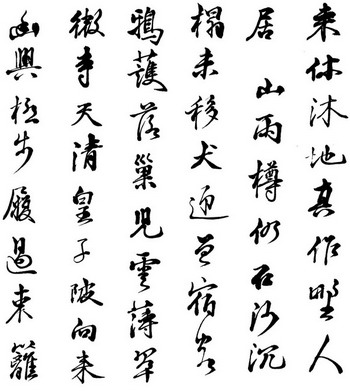 來休沐地真作野人
居 山雨樽仍在沙沉
榻未移犬迎曾宿客
鴉護落巢兒雲薄翠
微寺天清皇子陂向來
幽興極步履過東籬